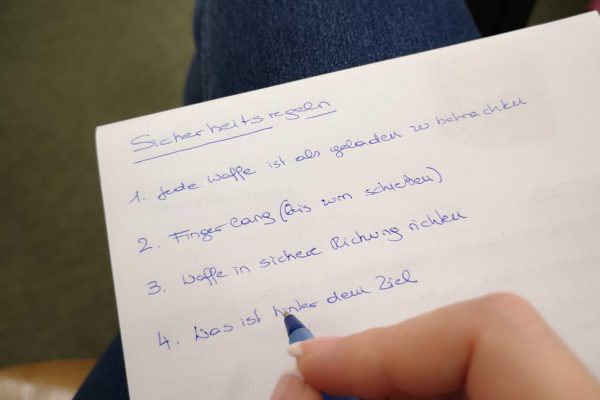 Sicherheitsregeln
1. Jede Waffe ist als geladen zu betrachten
2. Finger lang (bis zum schießen)
3. Waffe in sichere Richung richten
4. Was ist hinter dem Ziel